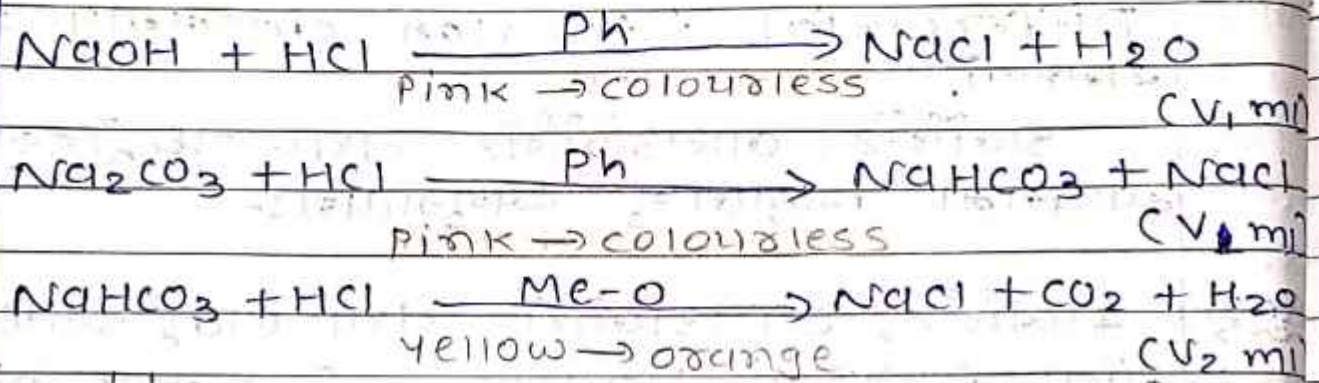 NaOH + HCl —Ph→ NaCl + H2O
Pink → colourless
(V1 ml)
Na2CO3 + HCl —Ph→ NaHCO3 + NaCl
Pink → colourless
(V ml)
NaHCO3 + HCl —Me-O→ NaCl + CO2 + H2O
Yellow → orange
(V2 ml)